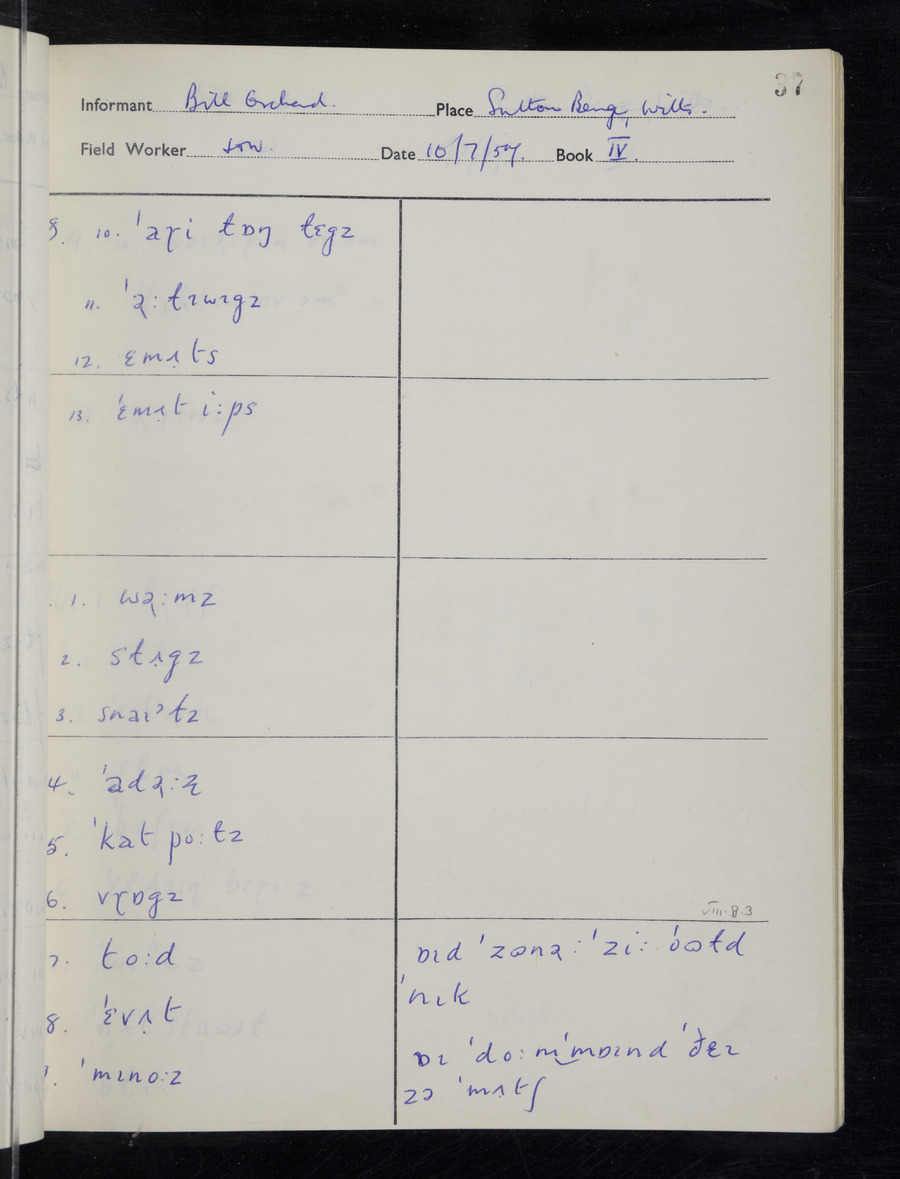 37
Informant Bill Orchard. Place Sutton Benger, Wilts.
Field Worker Date 10/7/57. Book IV.
10. ˈaɽi tɒŋ tɛgz
11. ˈəɽ: tɪwɪgz
12. ɛmʌts
13. ˈɛmʌt i:ps
1. wəɽ:mz
2. stʌgz
3. snaɪˀtz
4. ˈadəɽ:z
5. ˈkat po:tz
6. vɽɒgz
VIII.8.3
7. to:d
ɒɪd ˈzɒnəɽ: ˈzi:
8. ˈɛvʌt
ˈnɪk
ˈmɪno:z
ɒɪ ˈdo:nt ˈmɒɪnd ˈðɛɪ
zə ˈmʌtʃ